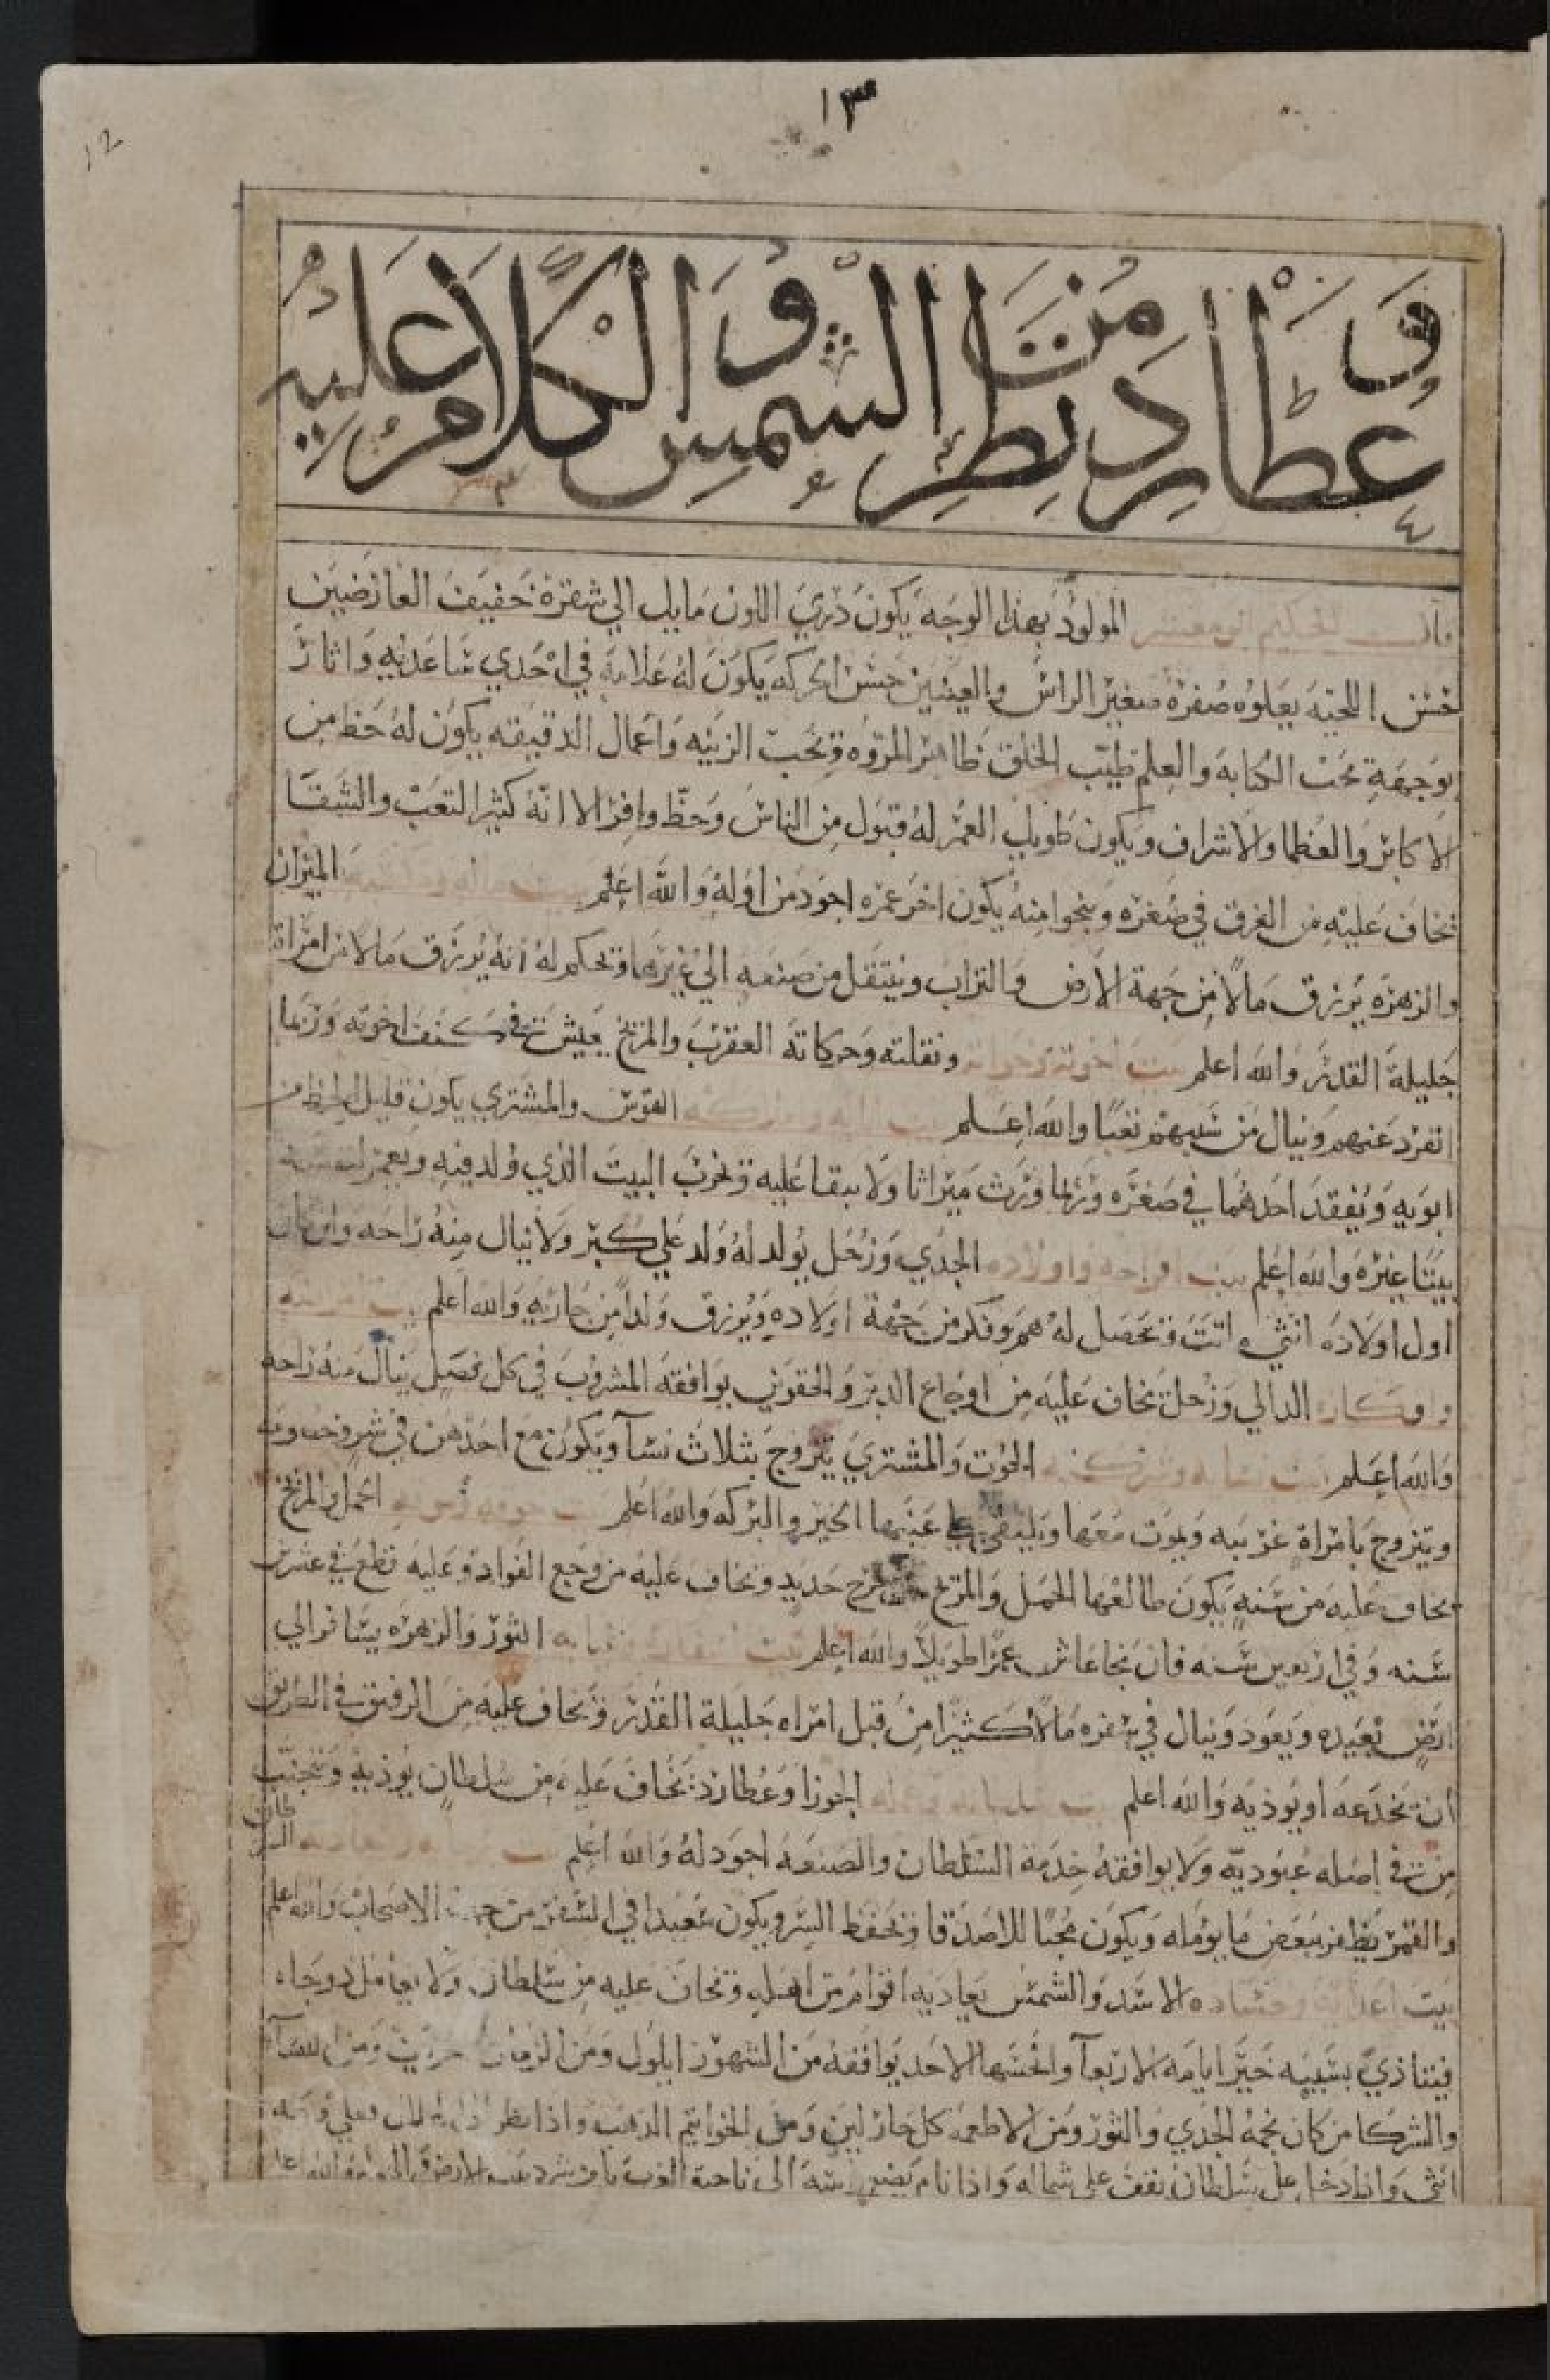 ١٣
12
و
عطارد بنظر من الشمس والكلام عليه
قال الحكيم ابو معشر المولود بهذا الوجه يكون دري اللون مايل الي شقرة خفيف العارضين
حسن اللحيه يعلوه صفره صغير الراس والعينين حسن الحركه يكون له علامة في احدي ساعديه واثار
بوجهه محب الكتابه والعلم طيب الخلق ظاهر المروه ويحب الزينه واعمال الدقيقه يكون له حظ من
الاكابر والعظما والاشراف ويكون طويل العمر له قبول من الناس وحظ وافر الا انه كثير التعب والشقا
يخاف عليه من الغرق في صغره وينجوا منه يكون اخر عمره اجود من اوله والله اعلم بيت ماله الميزان
والزهره يرزق مالا من جهة الارض والتراب وينتقل من صنعه الي غيرها ويحكم له انه يرزق مالا من امراة
جليلة القدر والله اعلم بيت اخوته ونقلته وحركاته العقرب والمريخ يعيش في كنف اخوته وربما
انفرد عنهم وينال من سببهم تعبا والله اعلم القوس والمشتري يكون قليل الحظ من
ابويه ويفقد احدهما في صغره وربما ورث ميراثا ولا يبقا عليه ويخرب البيت الذي ولد فيه ويعمر لنفسه
بيتا غيره والله اعلم بيت افراحه واولاده الجدي وزحل يولد له ولد علي كبر ولا ينال منه راحه وان كان
اول اولاده انثي اتت ويحصل له هم وفكر من جهة اولاده ويرزق ولدا من جاريه والله اعلم بيت امراضه
الدالي وزحل يخاف عليه من اوجاع الدبر والحقوين يوافقه المشروب في كل فصل ينال منه راحه
والله اعلم الحوت والمشتري يتزوج بثلاث نسآ ويكون مع احدهن في شر وخصومه
ويتزوج بامراة غريبه ويموت معها عنها الخير والبركه والله اعلم الحمل والمريخ
يخاف عليه من سنه يكون طالعها الحمل والمريخ حديد ويخاف عليه من وجع الفواد وعليه قطع في عشرين
سنه وفي اربعين سنه فان نجا عاش عمرا طويلا والله اعلم بيت الثور والزهره يسافر الي
ارض بعيده ويعود وينال في سفره مالا كثيرا من قبل امراه جليلة القدر ويخاف عليه من الرفيق في الطريق
ان يخدعه او يوذيه والله اعلم الجوزا وعطارد يخاف عليه من سلطان يوذيه ويتجنب
من في اصله عبوديه ولا يوافقه خدمة السلطان والصنعه اجود له والله اعلم
والقمر يظفر ببعض ما يومله ويكون محبا للاصدقا ويحفظ السر ويكون سعيدا في السفر من جهت الاصحاب والله اعلم
بيت اعدايه الاسد والشمس يعاديه اقوام من اهله ويخاف عليه من سلطان ولا يعامل دو جاه
فيتاذي بسببه خير ايامه الاربعآ وانحسها الاحد يوافقه من الشهور ايلول ومن
والشركا من كان نجمه الجدي والثور ومن الاطعمه كل حار لين ومن الخواتيم الذهب واذا نظر
انثي واذا دخل علي سلطان يقف علي شماله واذا نام الي ناحية الغرب